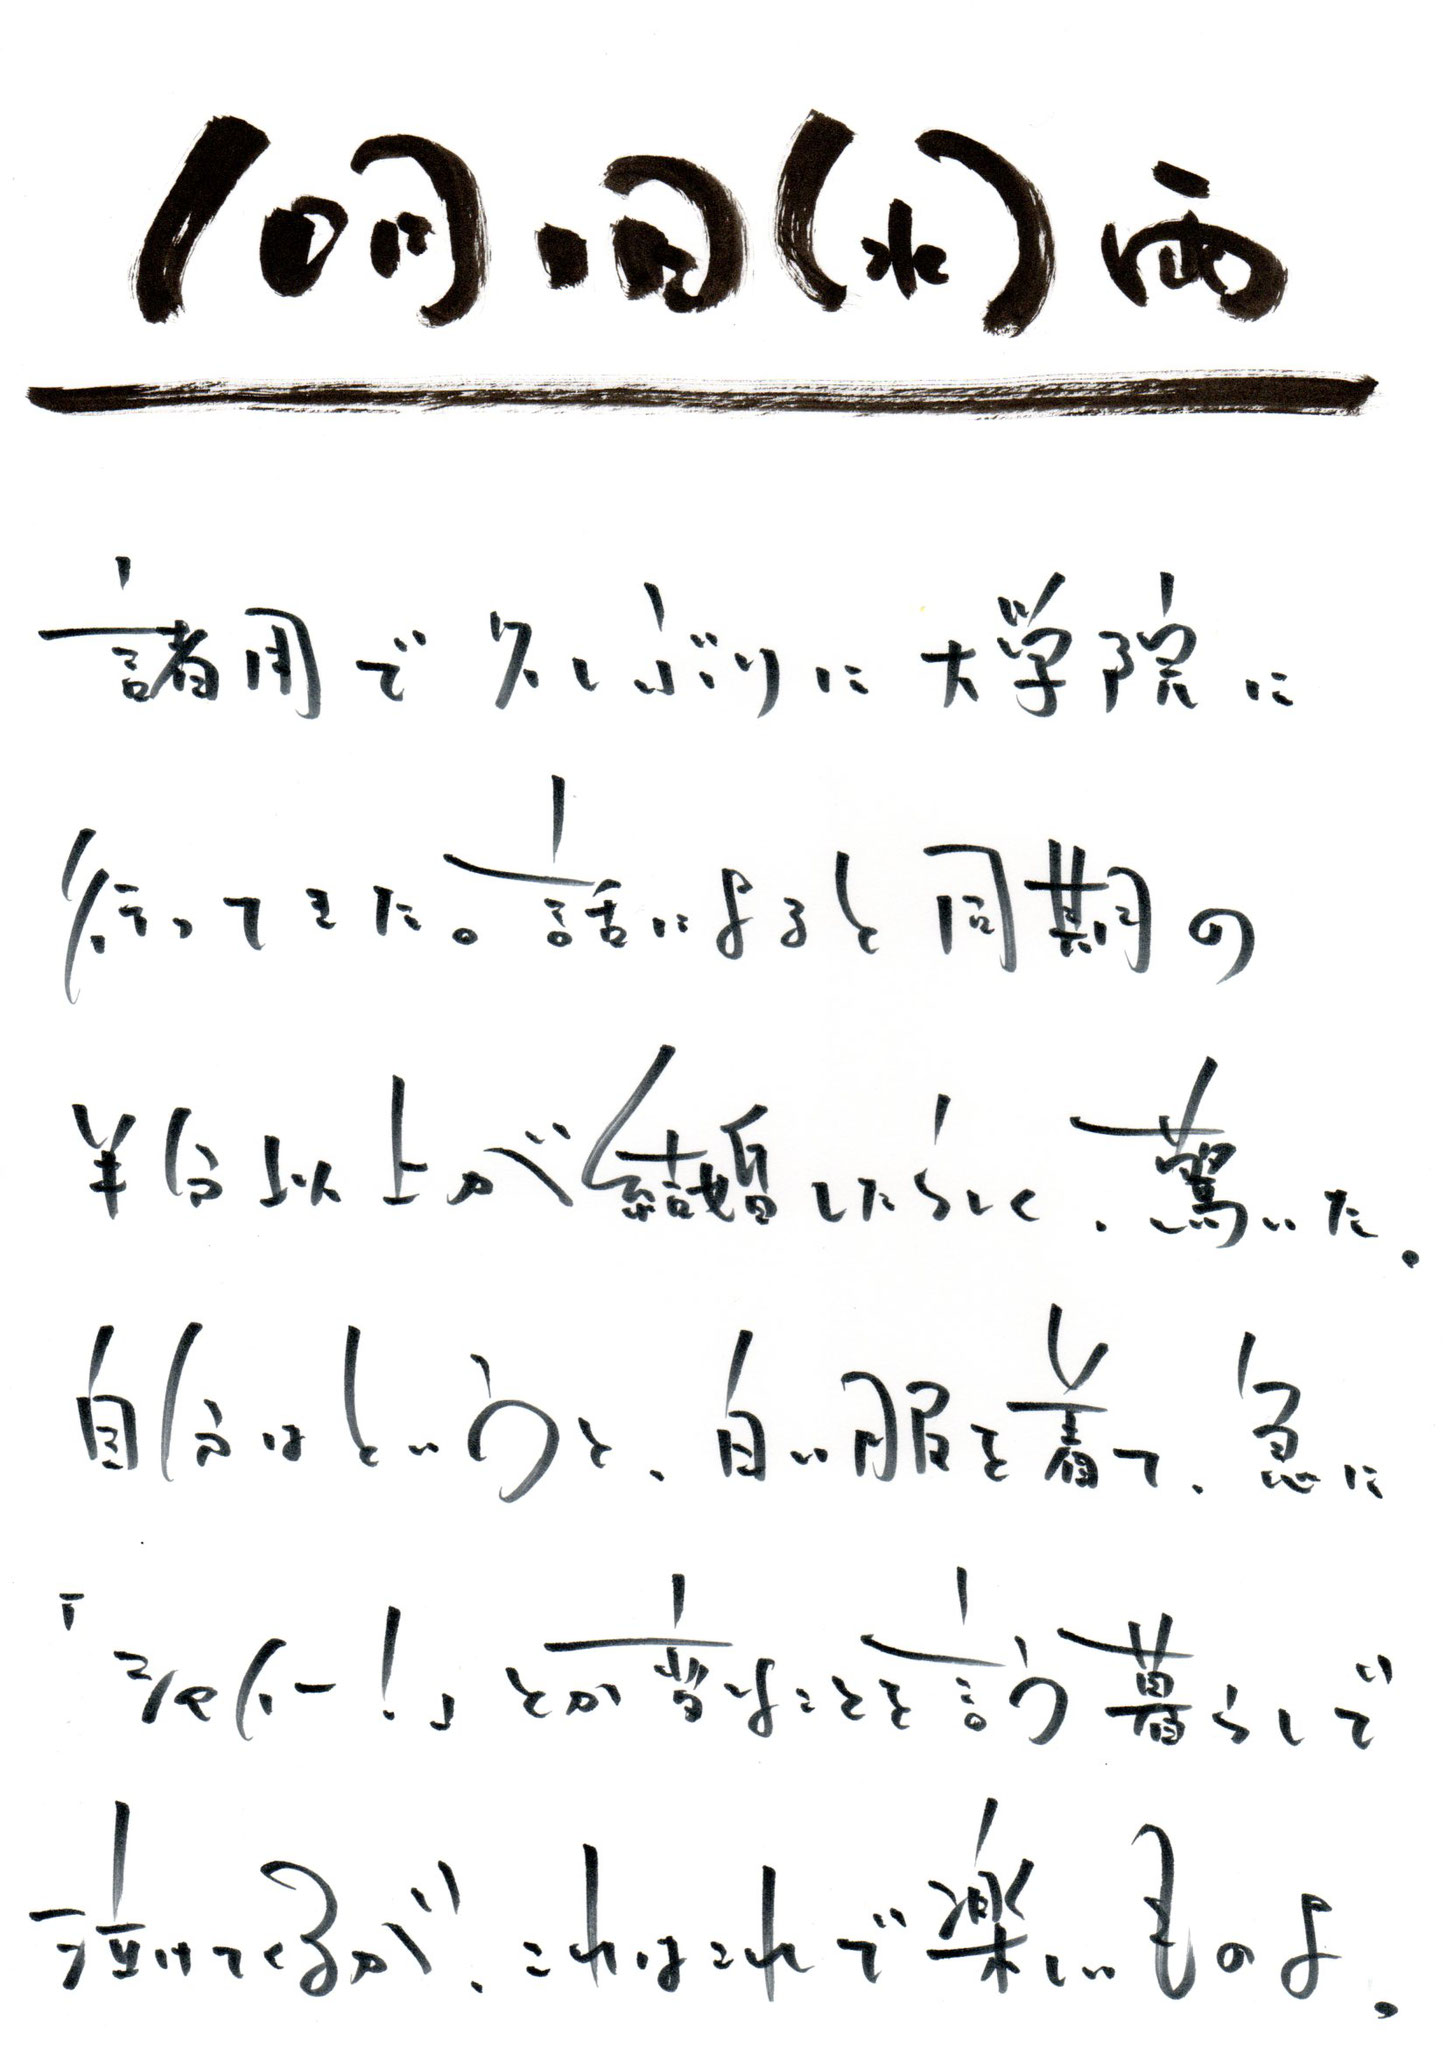 10月1日(水)雨
諸用で久しぶりに大学院に
行ってきた。話によると同期の
半分以上が結婚したらしく、驚いた。
自分はというと、白い服を着て、急に
「シャイー！」とか ことを言う暮らしで
泣けてくるが、これはこれで楽しいものよ。